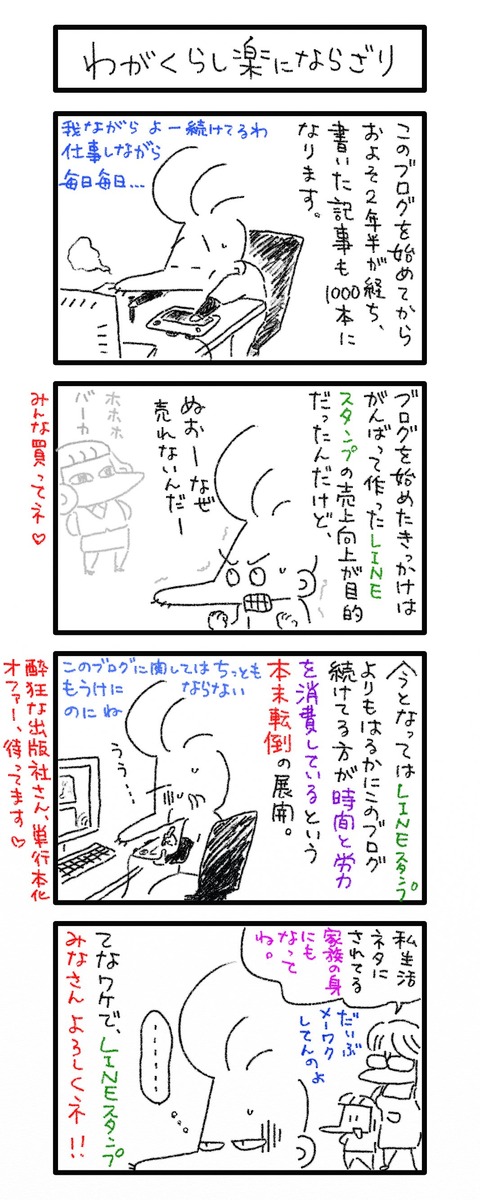 わがくらし楽にならざり
このブログを始めてから
およそ2年半が経ち、
書いた記事も1000本に
なります。
我ながらよー続けてるわ
仕事しながら
毎日毎日…
ブログを始めたきっかけは
がんばって作ったLINE
スタンプの売上向上が目的
だったんだけど、
ぬおーなぜ
売れないんだー
ホホホ
バーカ
みんな買ってネ♡
今となってはLINEスタンプ
よりもはるかにこのブログ
続けてる方が時間と労力
を消費しているという
本末転倒の展開。
このブログに関してはちっとも
もうけにならない
のにね
うぅ…
酔狂な出版社さん、単行本化
オファー、待ってます♡
私生活
ネタに
されてる
家族の身
にも
なって
ね。
だいぶ
メーワク
してんのよ
………
てなワケで、LINEスタンプ
みなさんよろしくネ!!